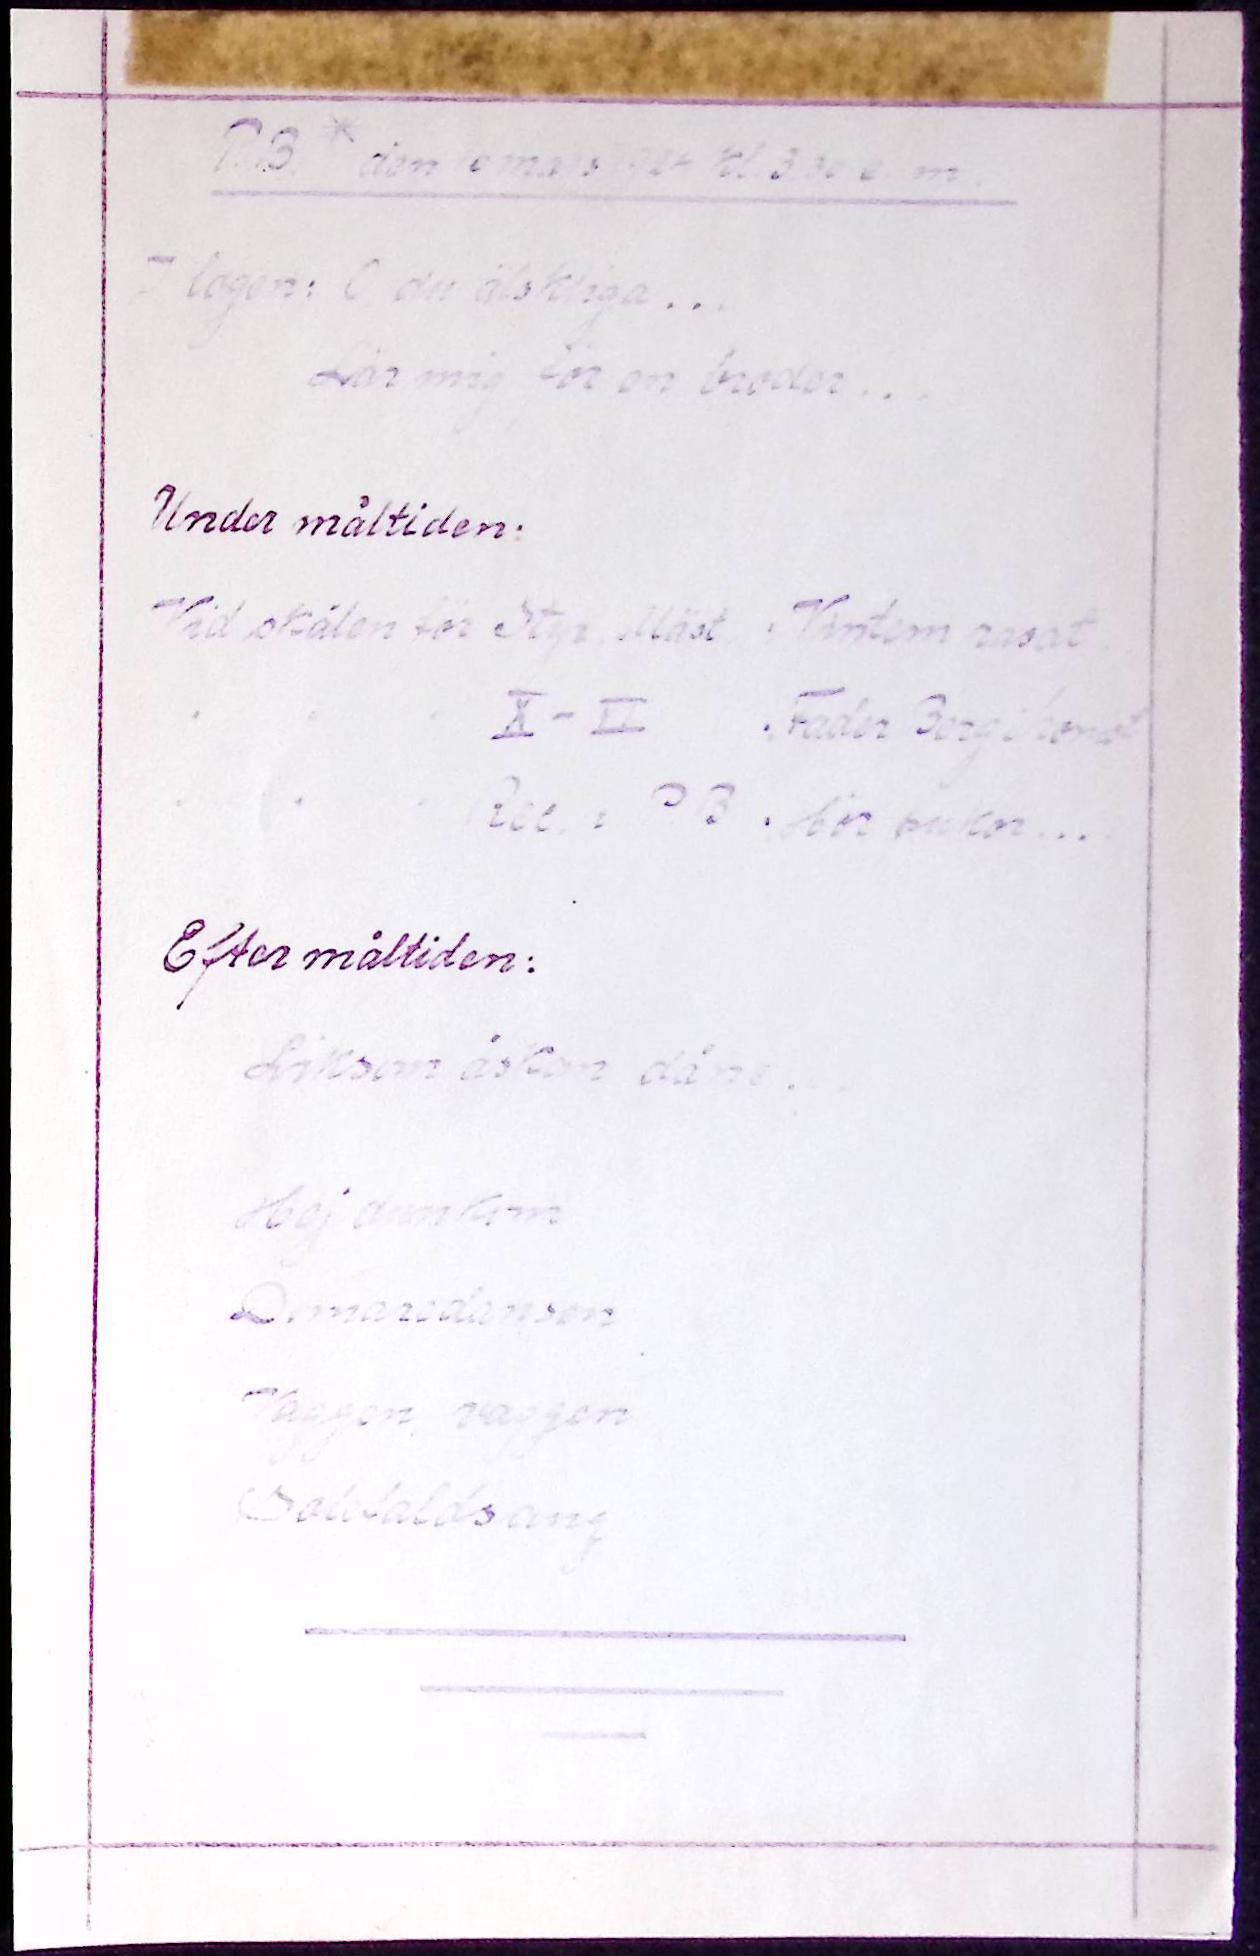 P.B.* den mars kl. 3.30 e. m.
I logen: O, du älskliga...
Lär mig för en broder...
Under måltiden:
Vid skålen för Styr. Mäst. : Vintern rasat..
" " " X - VI : Fader Berg i hornet
" " " Rec. i P.B. : Hör hukor....
Efter måltiden:
Liksom åskan dåne...
Hej dunkom
Domaredansen
Vaggen, vaggen
Solefaldsang